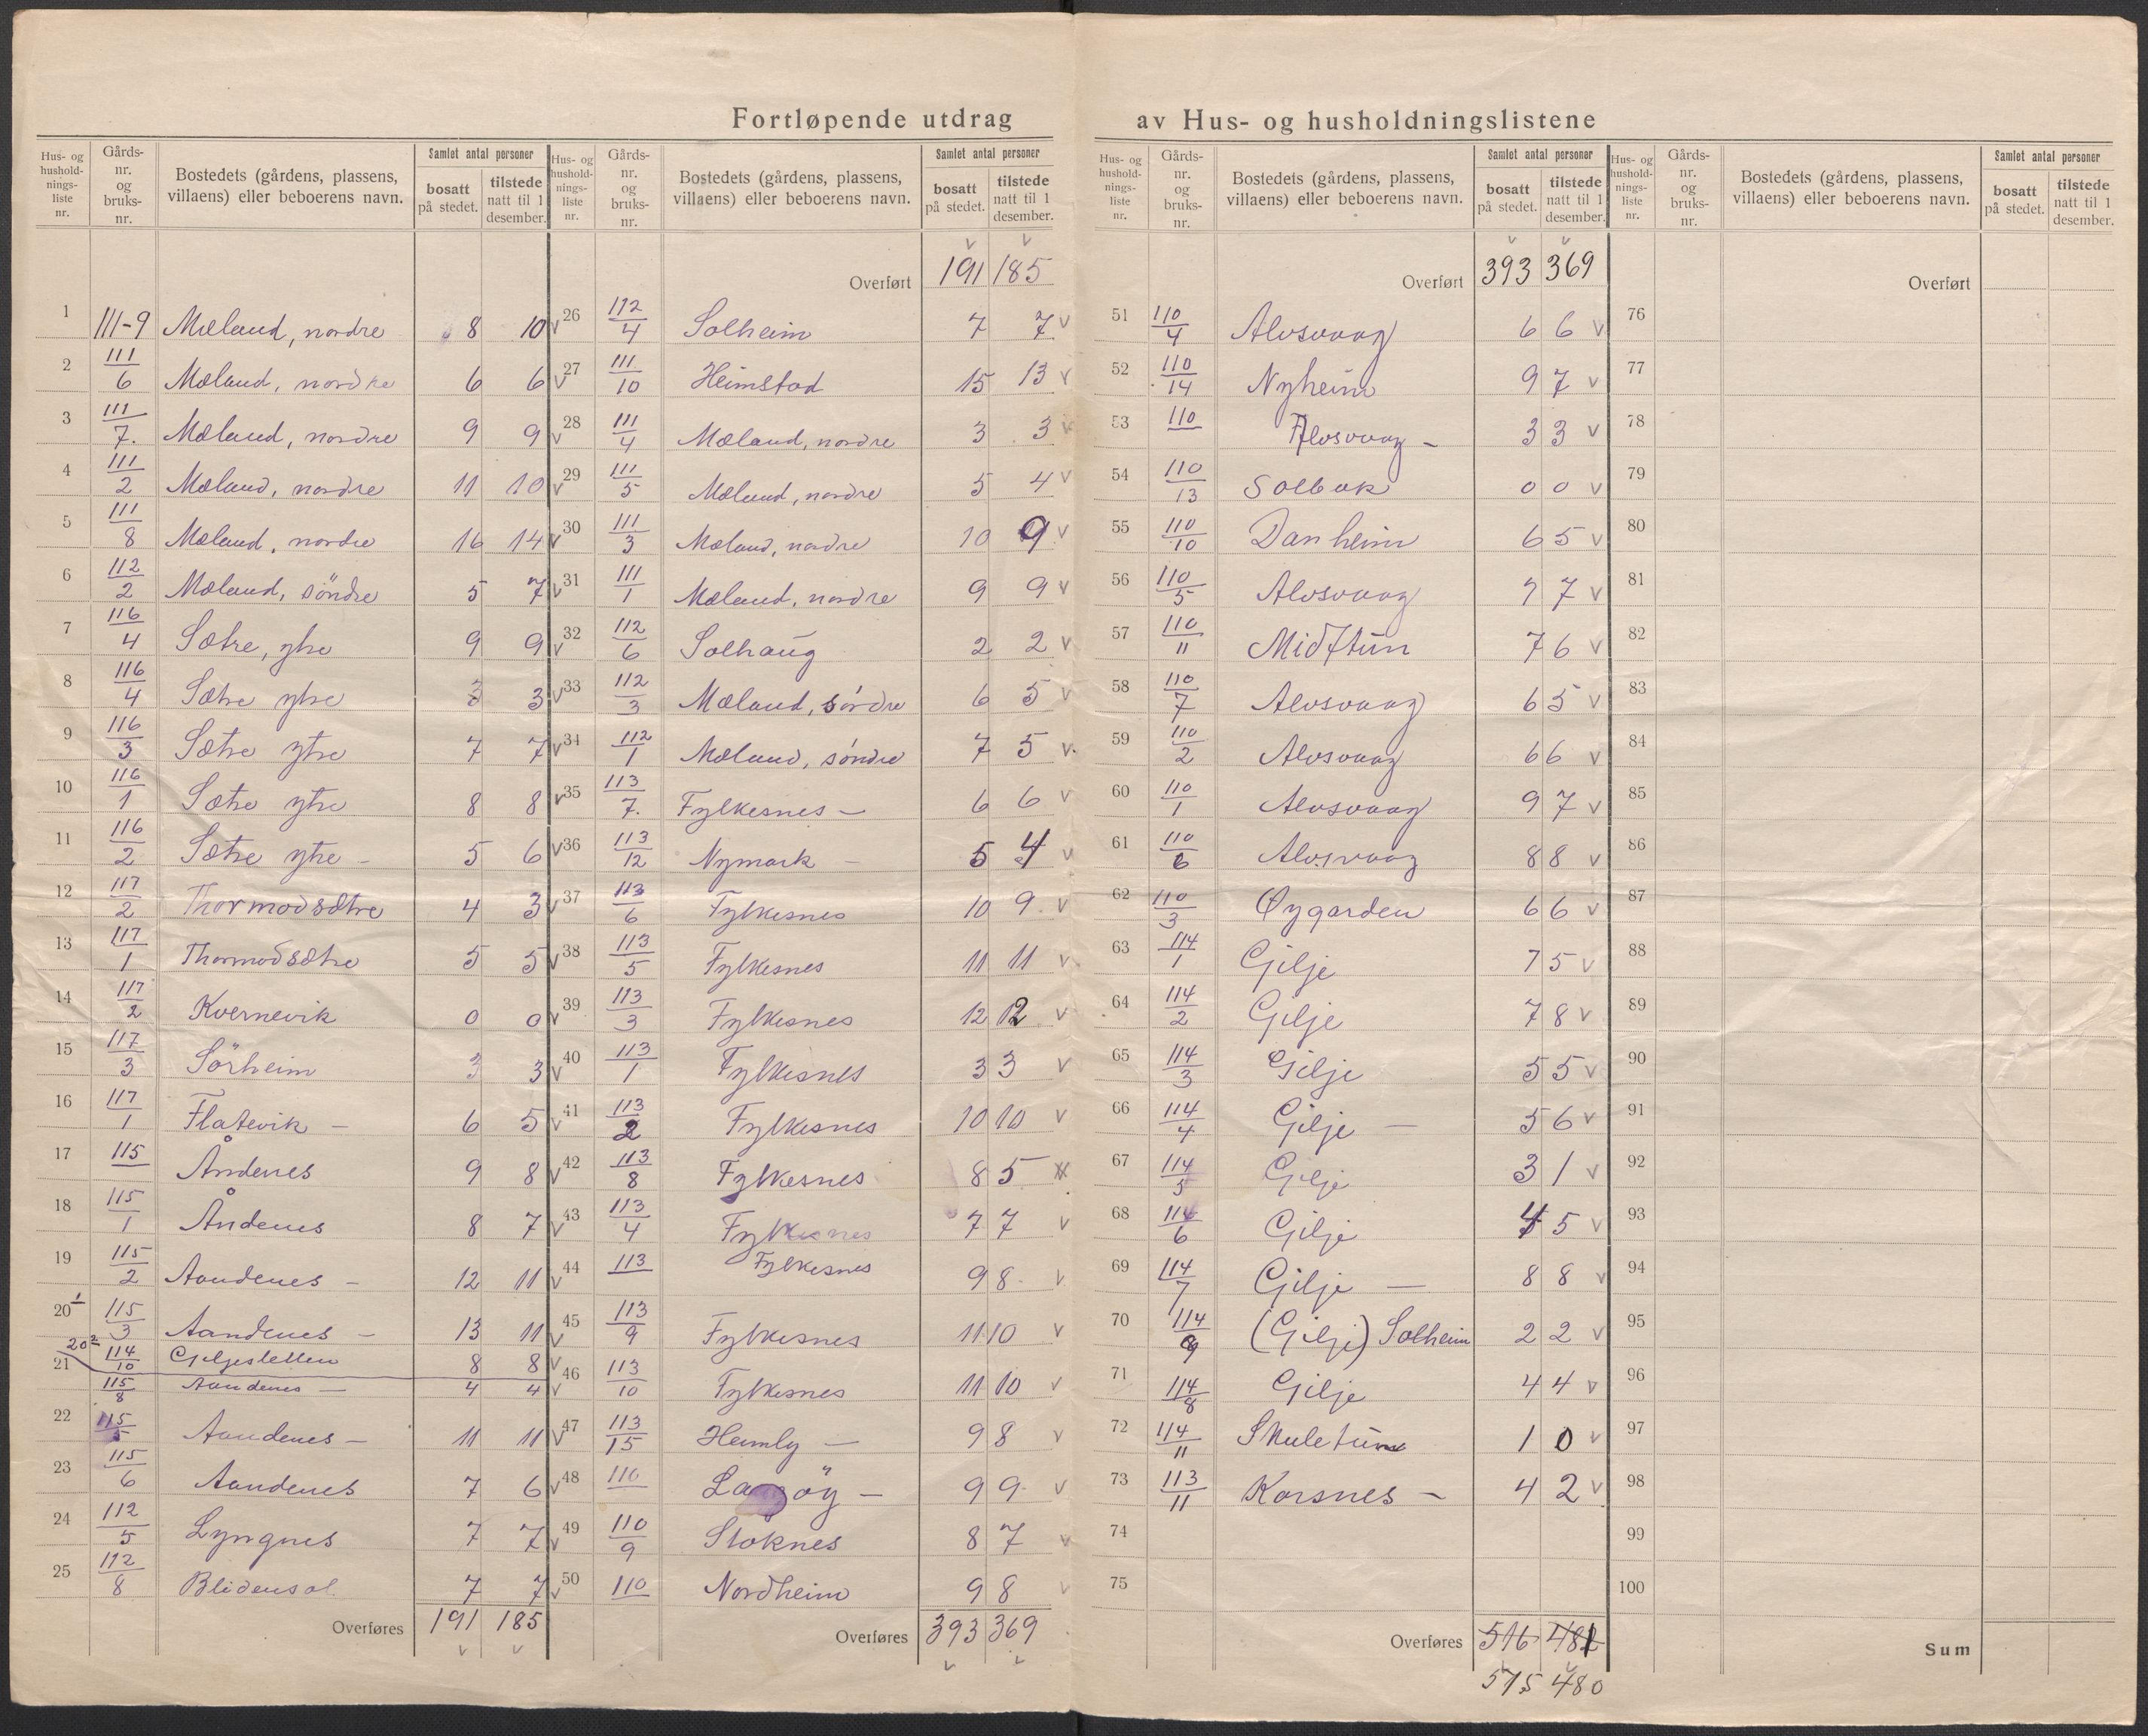 Fortløpende utdrag av Hus- og husholdningslistene
Hus- og hushold-nings-liste nr. Gårds-nr. og bruks-nr. Bostedets (gårdens, plassens, villaens) eller beboerens navn. Samlet antal personer bosatt på stedet. tilstede natt til 1 desember.
1 111-9 Mæland, nordre 8 10 v
2 111/6 Mæland, nordre 6 6 v
3 111/7. Mæland, nordre 9 9 v
4 111/2 Mæland, nordre 11 10 v
5 111/8 Mæland, nordre 16 14 v
6 112/2 Mæland, söndre 5 7 v
7 116/4 Sætre, ytre 9 9 v
8 116/4 Sætre ytre 3 3 v
9 116/3 Sætre ytre 7 7 v
10 116/1 Sætre ytre 8 8 v
11 116/2 Sætre ytre - 5 6 v
12 117/2 Thormodsætre 4 3 v
13 117/1 Thormodsætre 5 5 v
14 117/2 Kvernevik 0 0 v
15 117/3 Sörheim 3 3 v
16 117/1 Flatevik - 6 5 v
17 115 Åndenes 9 8 v
18 115/1 Åndenes 8 7 v
19 115/2 Aandenes - 12 11 v
20 1 115/3 Aandenes - 13 11 v
20 2 114/10 Giljesletten 8 8 v
21 115/8 Aandenes - 4 4 v
22 115/5 Aandenes - 11 11 v
23 115/6 Aandenes 7 6 v
24 112/5 Lyngnes 7 7 v
25 112/8 Blidensol. 7 7 v
Overføres 191 185
v v
Hus- og hushold-nings-liste nr. Gårds-nr. og bruks-nr. Bostedets (gårdens, plassens, villaens) eller beboerens navn. Samlet antal personer bosatt på stedet. tilstede natt til 1 desember.
v v
Overført 191 185
26 112/4 Solheim 7 7 v
27 111/10 Heimstad 15 13 v
28 111/4 Mæland, nordre 3 3 v
29 111/5 Mæland, nordre 5 4 v
30 111/3 Mæland, nordre 10 9 v
31 111/1 Mæland, nordre 9 9 v
32 112/6 Solhaug 2 2 v
33 112/3 Mæland, söndre 6 5 v
34 112/1 Mæland, söndre 7 5 v.
35 113/7. Fylkesnes - 6 6 v
36 113/12 Nymark - 5 4 v
37 113/6 Fylkesnes 10 9 v
38 113/5 Fylkesnes 11 11 v
39 113/3 Fylkesnes 12 12 v
40 113/1 Fylkesnes 3 3 v
41 113/2 Fylkesnes 10 10 v
42 113/8 Fylkesnes 8 5 v
43 113/4 Fylkesnes 7 7 v
44 113 Fylkesnes 9 8 v
45 113/9 Fylkesnes 11 10 v
46 113/10 Fylkesnes 11 10 v
47 113/15 Heimly - 9 8 v
48 110 9 9 v
49 110/9 Stoknes 8 7 v
50 110 Nordheim 9 8 v
Overføres 393 369
v v
Hus- og hushold-nings-liste nr. Gårds-nr. og bruks-nr. Bostedets (gårdens, plassens, villaens) eller beboerens navn. Samlet antal personer bosatt på stedet. tilstede natt til 1 desember.
v v
Overført 393 369
51 110/4 Alvsvaag 6 6 v
52 110/14 Nyheim 9 7 v
53 110 Alvsvaag - 3 3 v
54 110/13 Solbak 0 0 v
55 110/10 Danheim 6 5 v
56 110/5 Alvsvaag 7 7 v
57 110/11 Midttun 7 6 v
58 110/7 Alvsvaag 6 5 v
59 110/2 Alvsvaag 6 6 v
60 110/1 Alvsvaag 9 7 v
61 110/6 Alvsvaag 8 8 v
62 110/3 Øygarden 6 6 v
63 114/1 Gilje 7 5 v
64 114/2 Gilje 7 8 v
65 114/3 Gilje 5 5 v
66 114/4 Gilje - 5 6 v
67 114/5 Gilje 3 1 v
68 114/6 Gilje 4 5 v
69 114/7 Gilje - 8 8 v
70 114/9 (Gilje) Solheim 2 2 v
71 114/8 Gilje 4 4 v
72 114/11 Skuletun 1 0 v
73 113/11 Karsnes - 4 2 v
74
75
Overføres 516 481
515 480
Hus- og hushold-nings-liste nr. Gårds-nr. og bruks-nr. Bostedets (gårdens, plassens, villaens) eller beboerens navn. Samlet antal personer bosatt på stedet. tilstede natt til 1 desember.
Overført
76
77
78
79
80
81
82
83
84
85
86
87
88
89
90
91
92
93
94
95
96
97
98
99
100
Sum